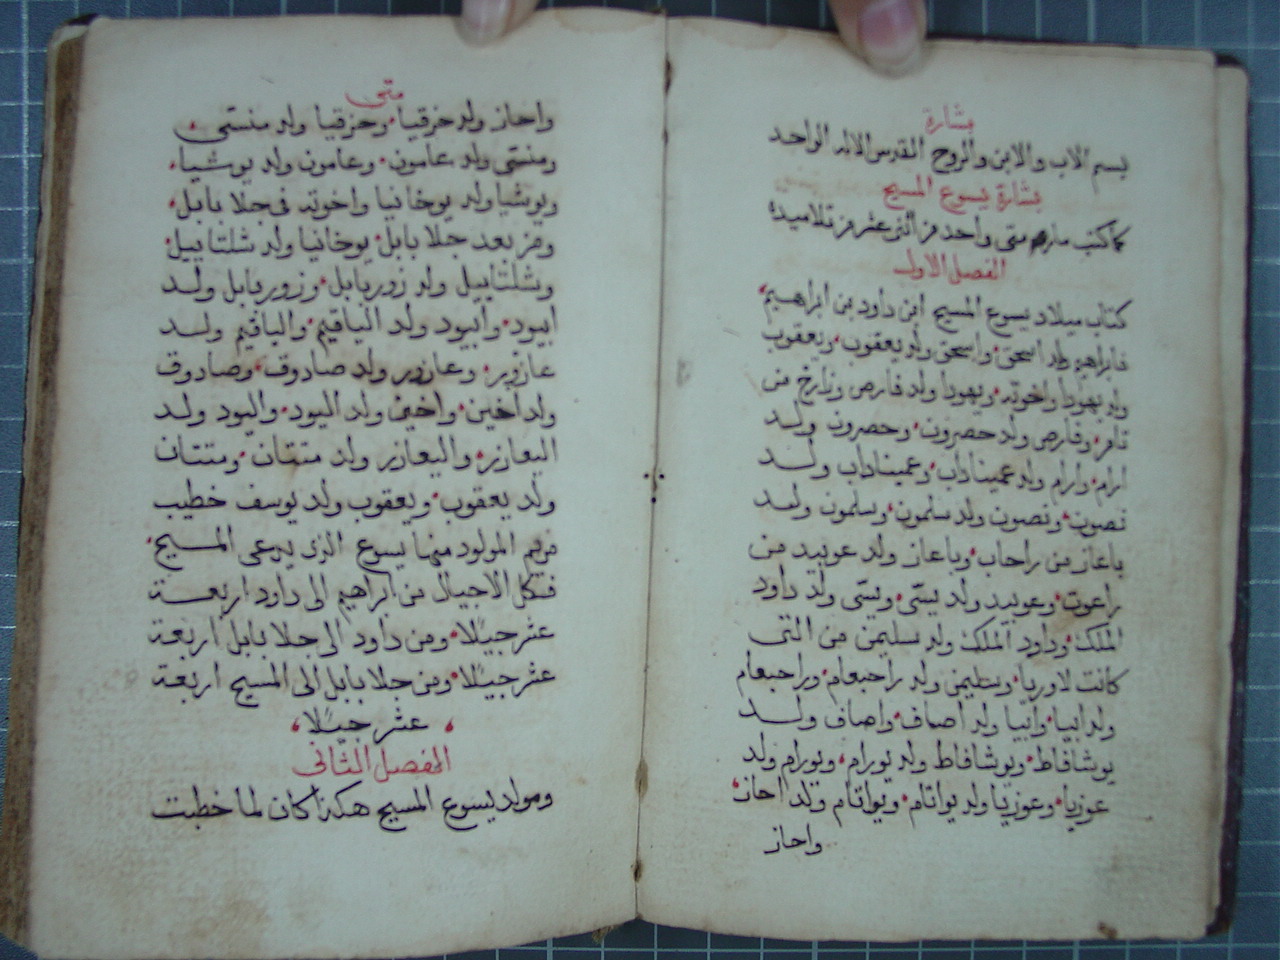 بشارة
بسم الاب والابن والروح القدس الاله الواحد
بشارة يسوع المسيح
كما كتب مار متى واحد من اثنى عشر من تلاميذه
الفصل الاول
كتاب ميلاد يسوع المسيح ابن داود بن ابراهيم
فابراهيم ولد اسحق واسحق ولد يعقوب ويعقوب
ولد يهودا واخوته ويهودا ولد فارص وزارح من
تامر وفارص ولد حصرون وحصرون ولد
ارام وارام ولد عميناداب وعميناداب ولد
نصون ونصون ولد سلمون وسلمون ولد
باعاز من راحاب وباعاز ولد عوبيد من
راعوت وعوبيد ولد يسّى ويسّى ولد داود
الملك وداود الملك ولد سليمن من التى
كانت لاوريا وسليمن ولد راحبعام وراحبعام
ولد ابيا وابيا ولد اصاف واصاف ولد
يوشافاط ويوشافاط ولد يورام ويورام ولد
عوزيا وعوزيا ولد يواتام ويواتام ولد احاز
واحاز
متى
واحاز ولد حزقيا وحزقيا ولد منسّى
ومنسّى ولد عامون وعامون ولد يوشيا
ويوشيا ولد يوخانيا واخوته فى جلا بابل
ومن بعد جلا بابل يوخانيا ولد شلتاييل
وشلتاييل ولد زوربابل وزوربابل ولد
ابيود وابيود ولد الياقيم والياقيم ولد
عازور وعازور ولد صادوق وصادوق
ولد اخين واخين ولد اليود واليود ولد
اليعازر واليعازر ولد متتان ومتتان
ولد يعقوب ويعقوب ولد يوسف خطيب
مريم المولود منها يسوع الذى يدعى المسيح
فكل الاجيال من ابراهيم الى داود اربعة
عشر جيلًا ومن داود الى جلا بابل اربعة
عشر جيلًا ومن جلا بابل الى المسيح اربعة
عشر جيلًا
الفصل الثانى
ومولد يسوع المسيح هكذا كان لما خطبت